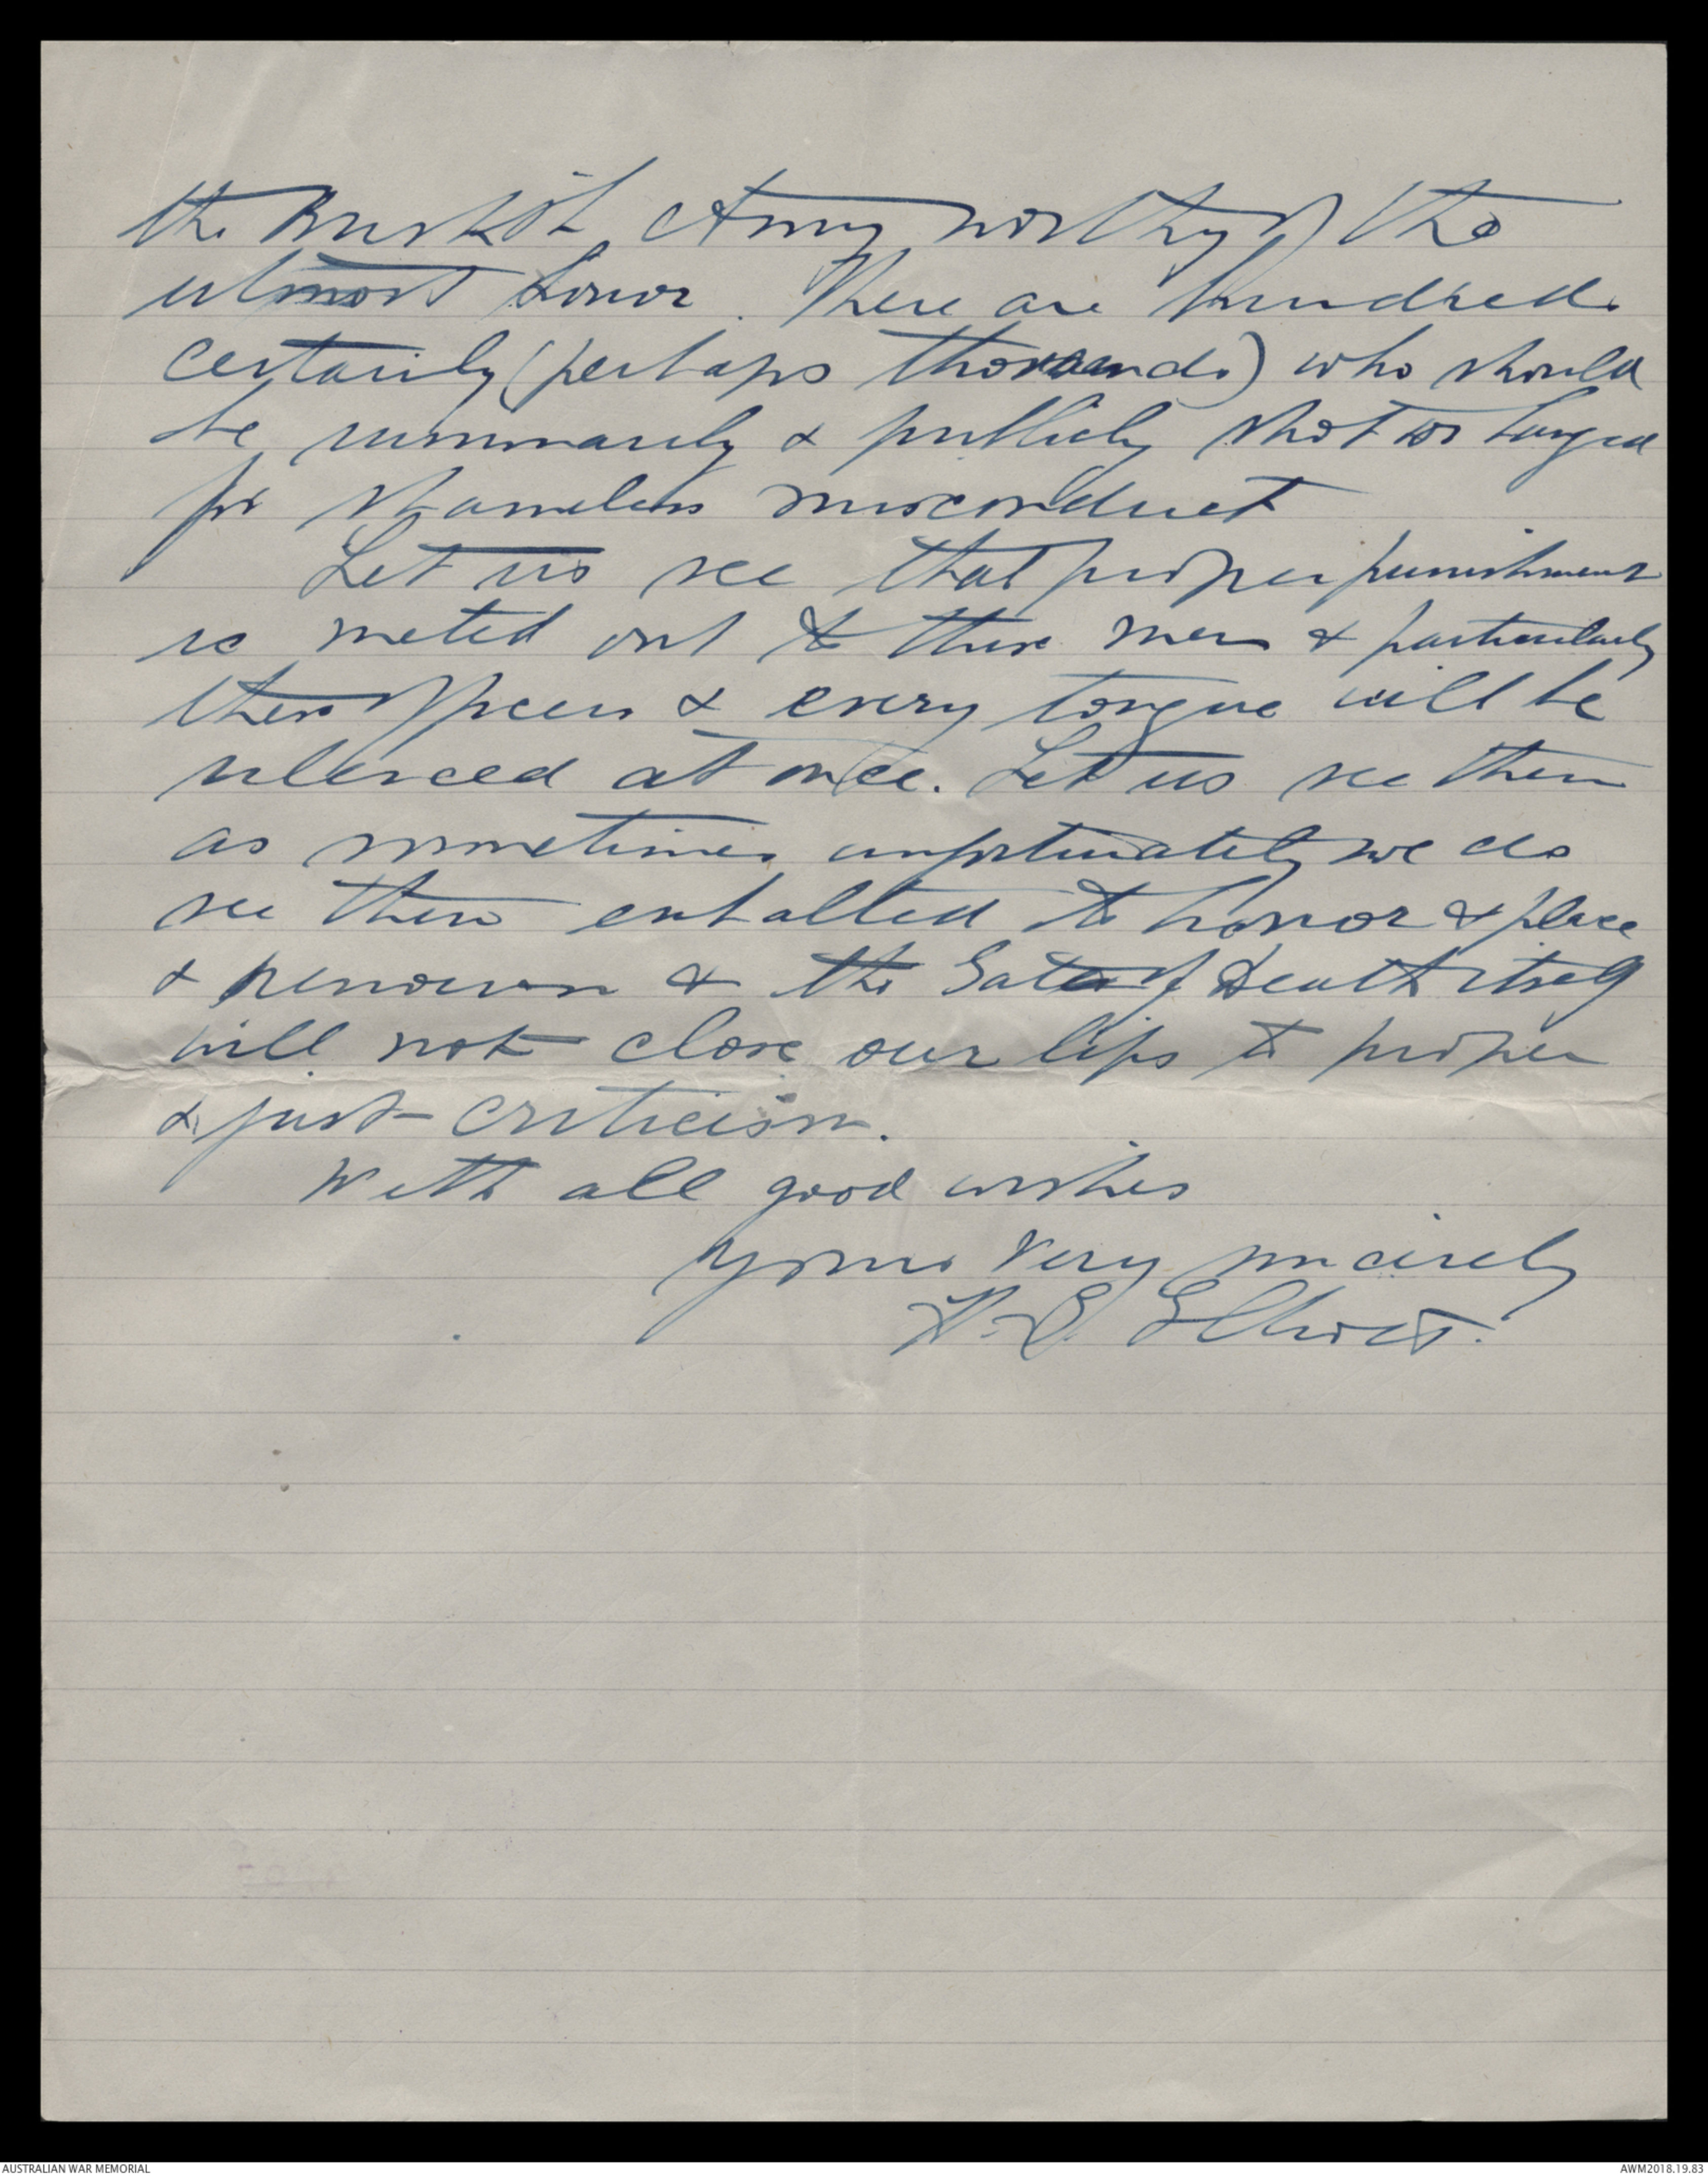 the British Army worthy of the
utmost honor. There are hundreds
certainly (perhaps thousands) who should
be summarily & publicly shot or hanged
for shameless misconduct
Let us see that proper punishment
is meted out to these men & particularly
these officers & every tongue will be
silenced at once. Let us see them
as sometimes unfortunately we do
see them exhalted to honor & place
& renown & the Gates of Death itself
will not close our lips to proper
& just criticism.
With all good wishes
Yours very sincerely
H.E. Elliott.
AUSTRALIAN WAR MEMORIAL
AWM2018.19.83